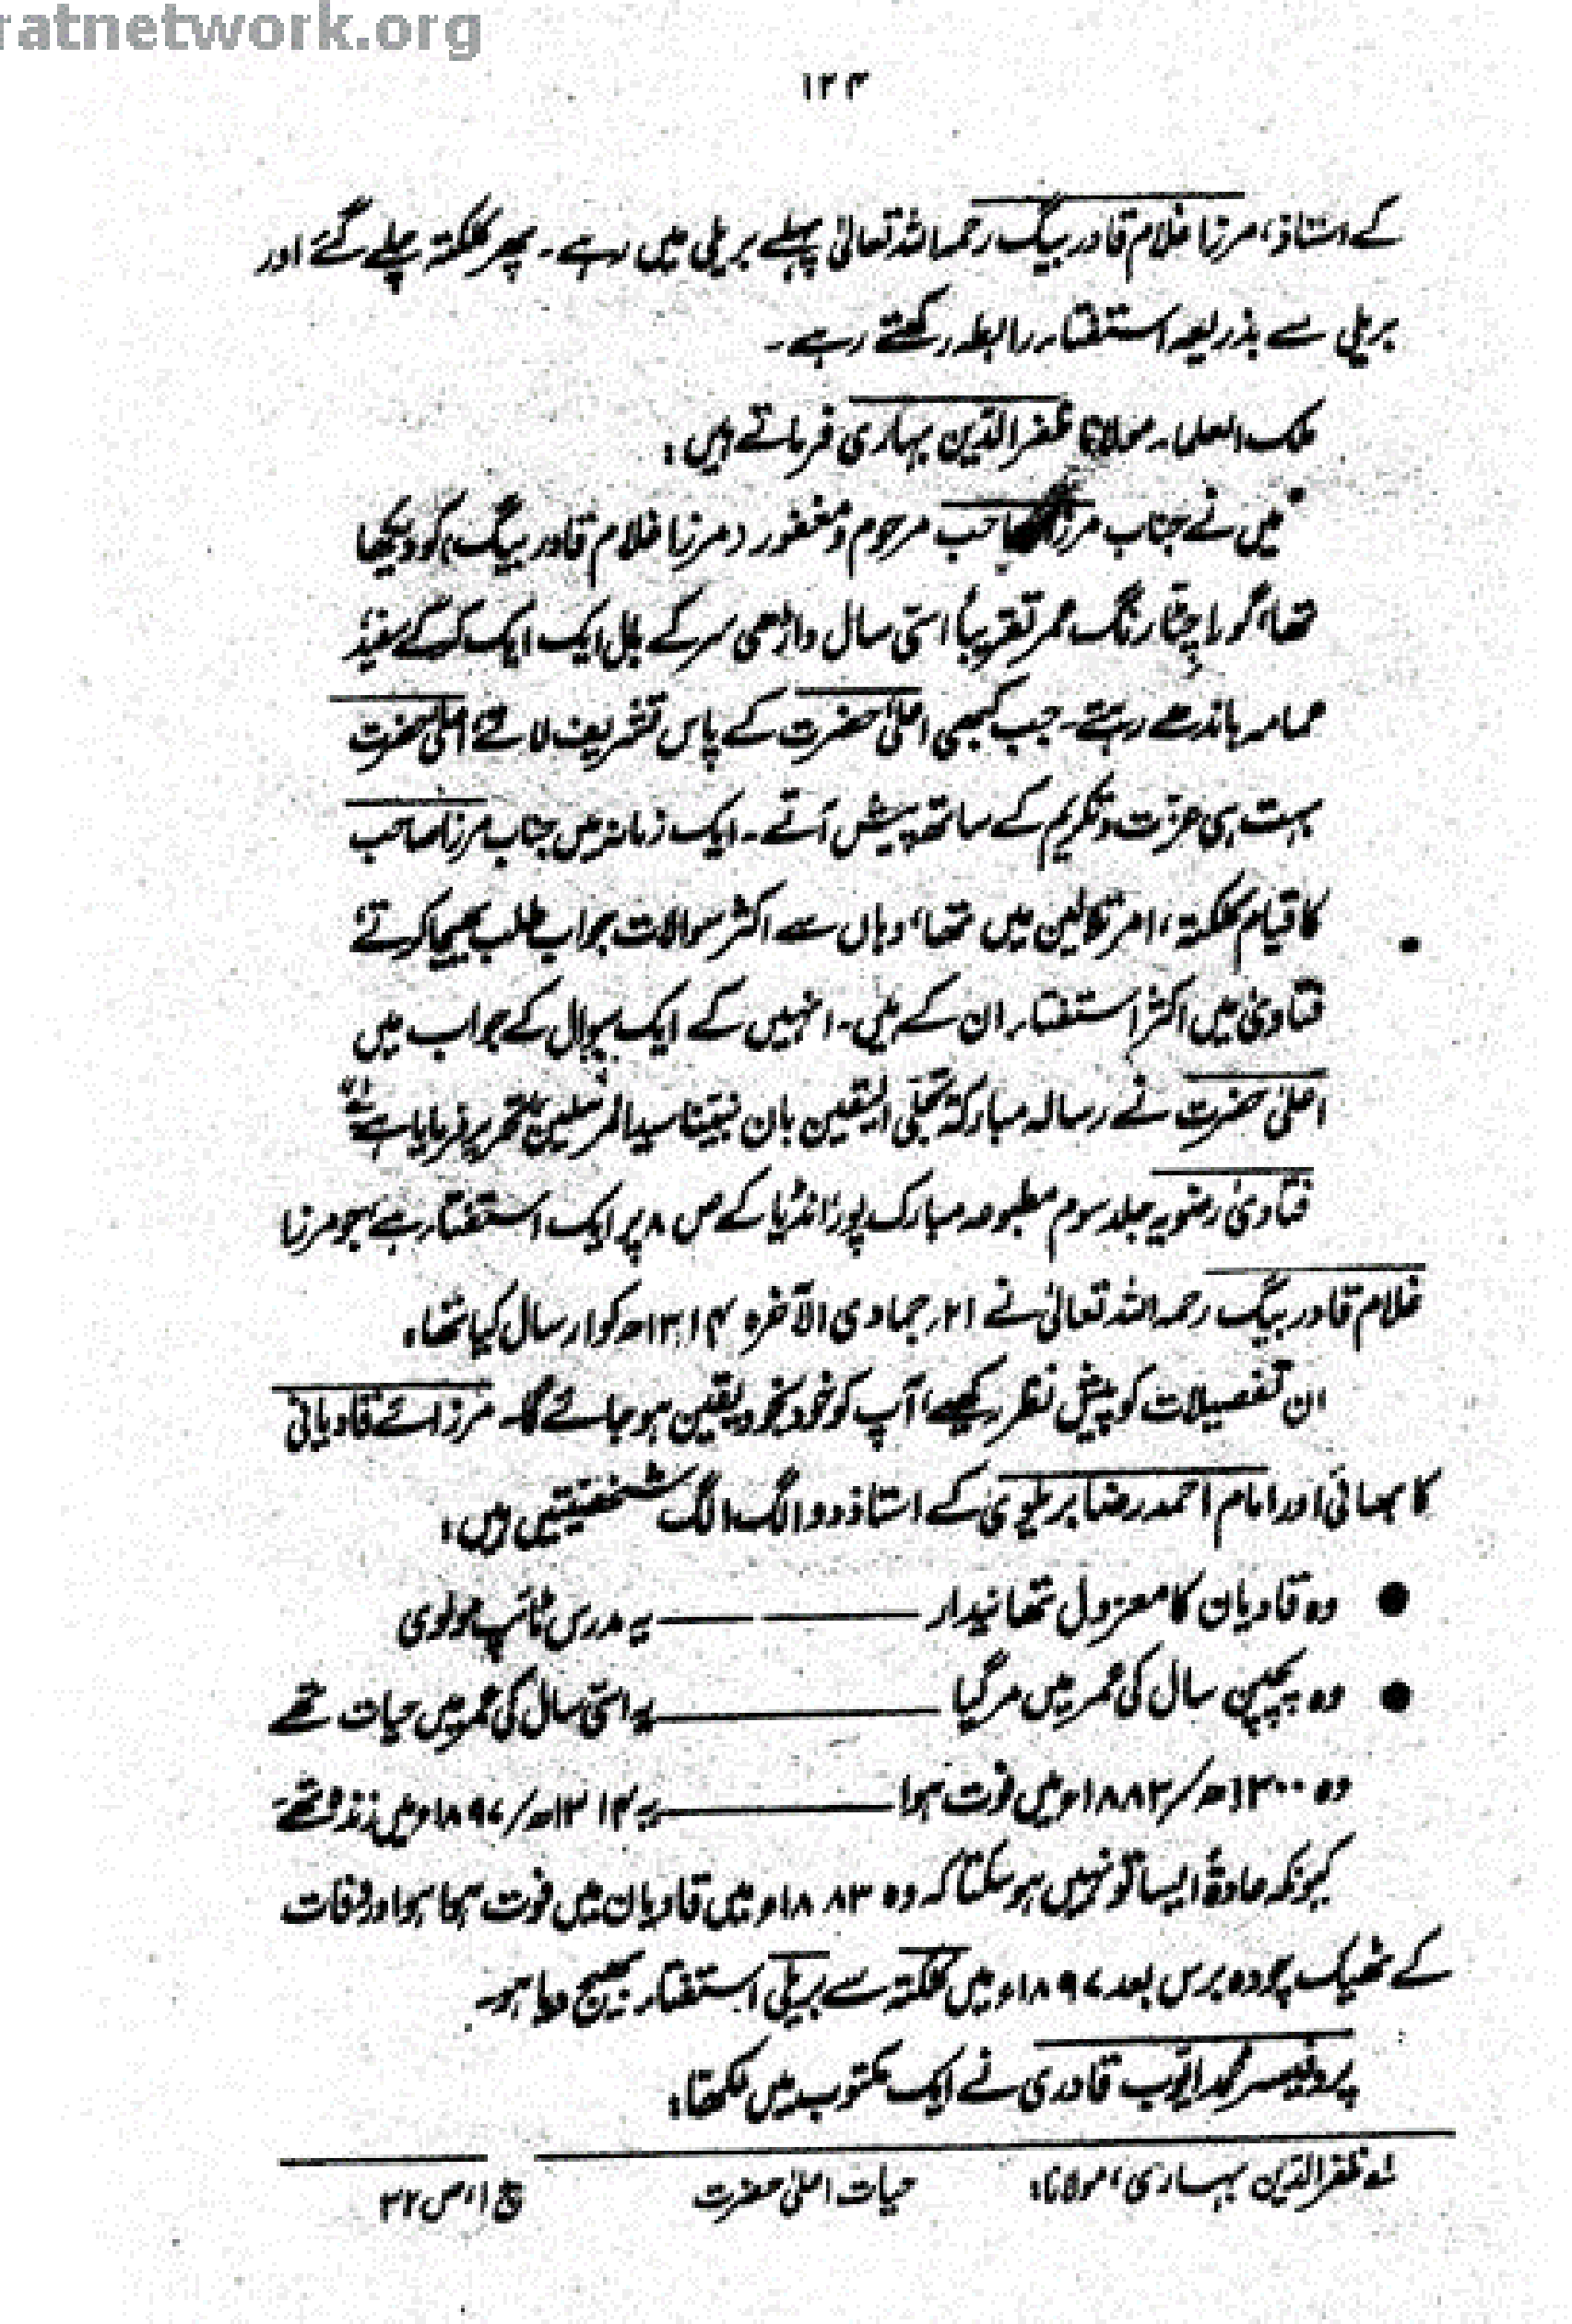 ratnetwork.org
۱۲۴
کے استاذ، مرزا غلام قادر بیگ رحمہ اللہ تعالیٰ پہلے بریلی میں رہے۔ پھر کلکتہ چلے گئے اور
بریلی سے بذریعہ استفتاء رابطہ رکھتے رہے۔
ملک العلماء مولانا ظفر الدین بہاری فرماتے ہیں:
"میں نے جناب مرزا صاحب مرحوم و مغفور (مرزا غلام قادر بیگ) کو دیکھا
تھا، گورا چٹا رنگ عمر تقریباً اسّی سال داڑھی سر کے بال ایک ایک کرکے سفید
عمامہ باندھے رہتے۔ جب کبھی اعلیٰ حضرت کے پاس تشریف لاتے اعلیٰ حضرت
بہت ہی عزت و تکریم کے ساتھ پیش آتے۔ ایک زمانہ میں جناب مرزا صاحب
کا قیام کلکتہ، امرتلا لین میں تھا، وہاں سے اکثر سوالات جواب طلب بھیجا کرتے
فتاویٰ میں اکثر استفتاء ان کے ہیں۔ انہیں کے ایک سوال کے جواب میں
اعلیٰ حضرت نے رسالہ مبارکہ تجلی الیقین بان نبینا سید المرسلین تحریر فرمایا ہے"
فتاویٰ رضویہ جلد سوم مطبوعہ مبارک پور، انڈیا کے ص ۸ پر ایک استفتاء ہے جو مرزا
غلام قادر بیگ رحمہ اللہ تعالیٰ نے ۲۱ جمادی الآخرہ ۱۳۱۴ھ کو ارسال کیا تھا۔
ان تفصیلات کو پیش نظر رکھیے، آپ کو خود بخود یقین ہو جائے گا۔ مرزائے قادیانی
کا بھائی اور امام احمد رضا بریلوی کے استاذ دو الگ الگ شخصیتیں ہیں:
● وہ قادیان کا معزول تھانیدار ——— یہ مدرس ٹائپ مولوی
● وہ پچپن سال کی عمر میں مر گیا ——— یہ اسّی سال کی عمر میں حیات تھے
وہ ۱۳۰۰ھ/۱۸۸۳ء میں فوت ہوا ——— یہ ۱۳۱۴ھ/۱۸۹۷ء میں زندہ تھے
کیونکہ عادۃً ایسا تو نہیں ہو سکتا کہ وہ ۱۸۸۳ء میں قادیان میں فوت ہوا ہو اور وفات
کے ٹھیک چودہ برس بعد ۱۸۹۷ء میں کلکتہ سے بریلی استفتاء بھیج دیا ہو۔
پروفیسر محمد ایوب قادری نے ایک مکتوب میں لکھا:
لہ ظفر الدین بہاری، مولانا: حیات اعلیٰ حضرت ج ۱، ص ۳۲